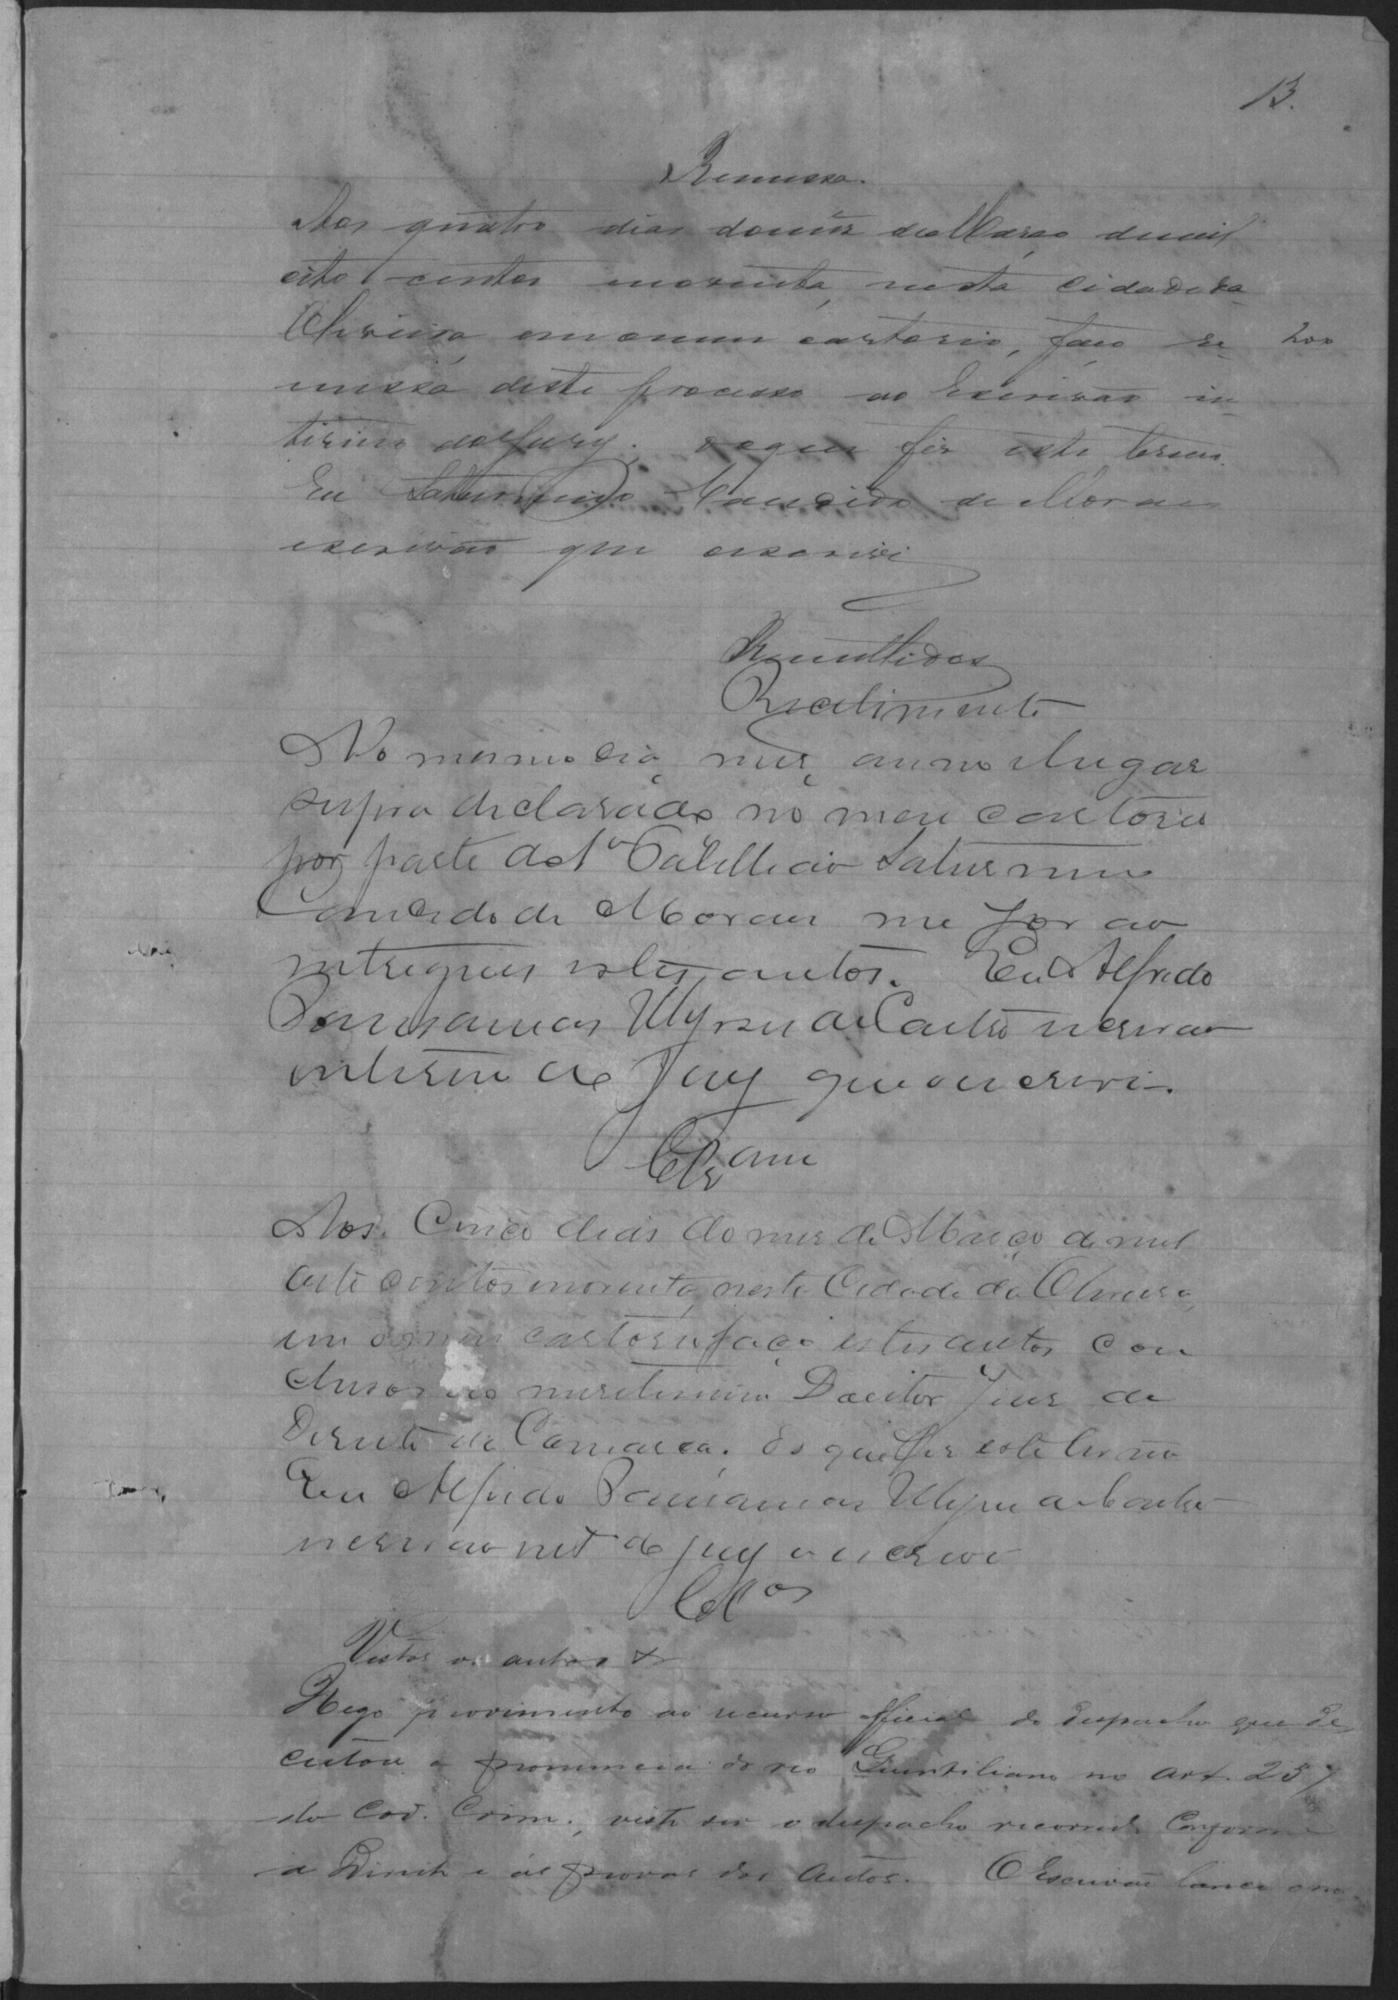 13.
Remessa.
Aos quatro dias do mez de Março de mil
oito centos noventa, nesta Cidade da
Oliveira em o meu cartorio, faço re- 200
messa deste processo ao Escrivão in-
terino do Jury; do que fiz este termo.
Eu Saturnino Candido de Moraes
escrivão que o escrivi
Remettidos
Recebimento
No mesmo dia, mez, anno e lugar
supra declarado no meu cartorio
por parte do 1º Tabellião Saturnino
Candido de Moraes me for ão
entregues estes autos. Eu Alfredo
Ulysses de Castro escrivão
interino do Jury que o escrevi.
Clsam
Aos Cinco dias do mez de Março de mil
oito centos noventa, nesta Cidade da Oliveira,
em o meu cartorio faço estes autos con
clusos ao meretissimo Doutor Juiz de
Direito da Comarca. do que fiz este termo
Eu Alfredo Ulysses de Castro
escrivão intº do jury o escrevi
Clºs
Vistos os autos &
Nego provimento ao recurso official do despacho que de
cretou a pronuncia do reo Quintiliano no art. 257
do Cod. Crim., visto ser o despacho recorrido conforme
a Direito e ás provas dos autos. O Escrivão lance o no